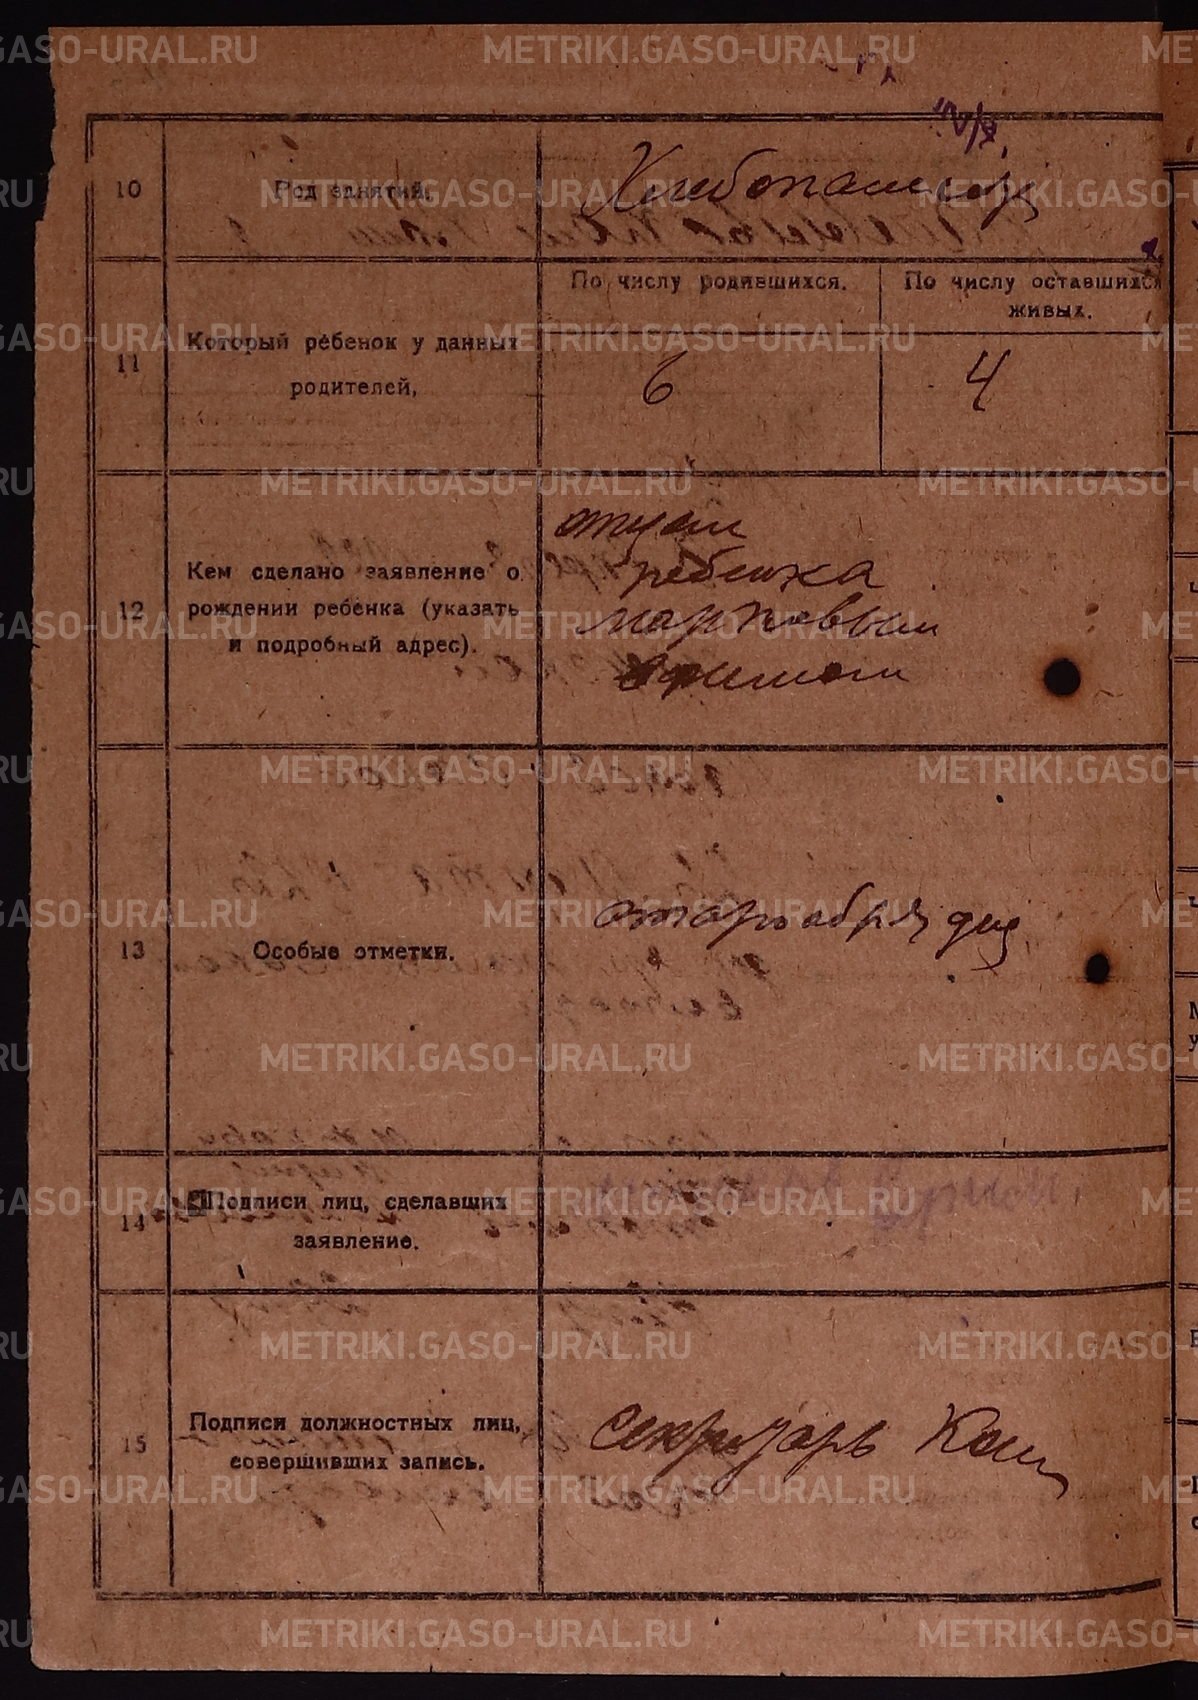 10
Род занятий.
Хлебопашец
11
Который ребенок у данных
родителей.
По числу родившихся.
По числу оставшихся
живых.
6
4
12
Кем сделано заявление о
рождении ребенка (указать
и подробный адрес).
отцом
ребенка
13
Особые отметки.
старообрядцы
14
Подписи лиц, сделавших
заявление.
15
Подписи должностных лиц,
совершивших запись.
секретарь
METRIKI.GASO-URAL.RU